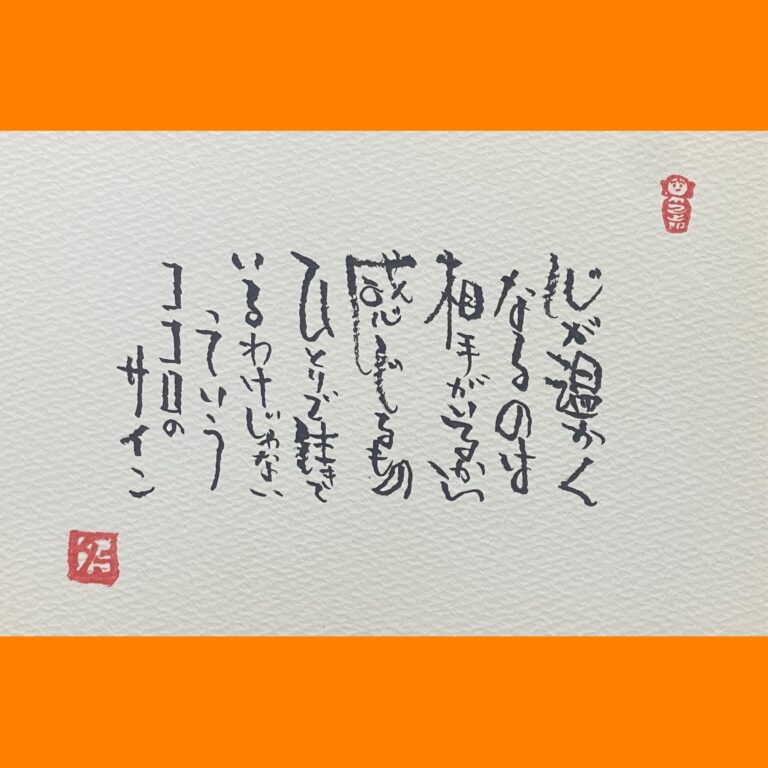 心が温かく
なるのは
相手がいるから
感じるもの
ひとりで生きて
いるわけじゃない
っていう
ココロの
サイン